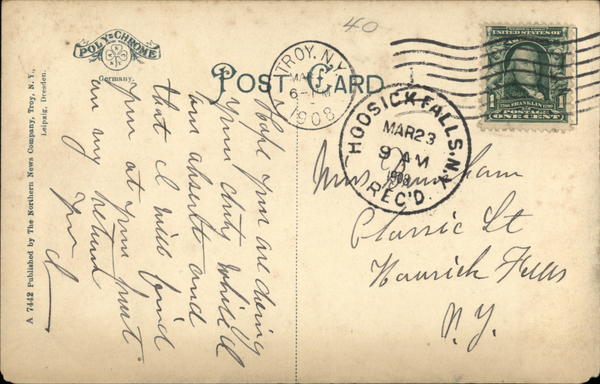 40
POLY-CHROME
Germany.
POST CARD
TROY, N.Y.
MAR
6-PM
1908
HOOSICK FALLS, N.Y.
MAR 23
9 AM
1908
REC'D.
UNITED STATES OF
FRANKLIN
POSTAGE
1 ONE CENT 1
A 7442 Published by The Northern News Company, Troy, N. Y.,
Leipzig, Dresden.
Hope you are doing
your duty while I
am absent and
that I will find
you at your post
on my return
Classic St
Hoosick Falls
N.Y.